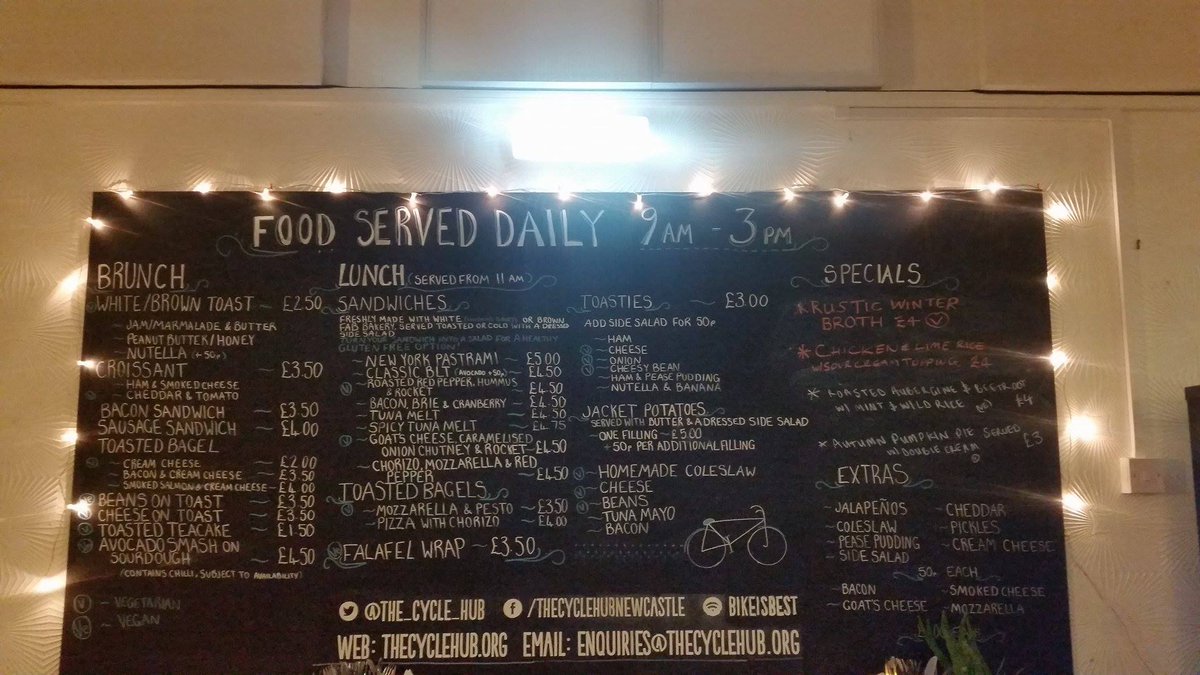 FOOD SERVED DAILY 9AM - 3PM
BRUNCH
WHITE/BROWN TOAST ~ £2.50
~ JAM/MARMALADE & BUTTER
~ PEANUT BUTTER/HONEY
~ NUTELLA (+50p)
CROISSANT ~ £3.50
~ HAM & SMOKED CHEESE
~ CHEDDAR & TOMATO
BACON SANDWICH ~ £3.50
SAUSAGE SANDWICH ~ £4.00
TOASTED BAGEL
~ CREAM CHEESE ~ £2.00
~ BACON & CREAM CHEESE ~ £3.50
~ SMOKED SALMON & CREAM CHEESE ~ £4.00
BEANS ON TOAST ~ £3.50
CHEESE ON TOAST ~ £3.50
TOASTED TEACAKE ~ £1.50
AVOCADO SMASH ON
SOURDOUGH ~ £4.50
(CONTAINS CHILLI, SUBJECT TO AVAILABILITY)
V ~ VEGETARIAN
~ VEGAN
LUNCH (SERVED FROM 11AM)
SANDWICHES
FRESHLY MADE WITH WHITE OR BROWN
FAB BAKERY. SERVED TOASTED OR COLD WITH A DRESSED
SIDE SALAD
SANDWICH INTO A SALAD FOR A HEALTHY
GLUTEN FREE OPTION
~ NEW YORK PASTRAMI ~ £5.00
~ CLASSIC BLT (AVOCADO +50p) ~ £4.50
~ ROASTED RED PEPPER, HUMMUS
& ROCKET ~ £4.50
~ BACON, BRIE & CRANBERRY ~ £4.50
~ TUNA MELT ~ £4.50
~ SPICY TUNA MELT ~ £4.75
~ GOATS CHEESE, CARAMELISED
ONION CHUTNEY & ROCKET ~ £4.50
~ CHORIZO, MOZZARELLA & RED
PEPPER ~ £4.50
TOASTED BAGELS
~ MOZZARELLA & PESTO ~ £3.50
~ PIZZA WITH CHORIZO ~ £4.00
FALAFEL WRAP ~ £3.50
TOASTIES ~ £3.00
ADD SIDE SALAD FOR 50p
~ HAM
~ CHEESE
~ ONION
~ CHEESY BEAN
~ HAM & PEASE PUDDING
~ NUTELLA & BANANA
JACKET POTATOES
SERVED WITH BUTTER & A DRESSED SIDE SALAD
~ ONE FILLING ~ £5.00
~ +50p PER ADDITIONAL FILLING
~ HOMEMADE COLESLAW
~ CHEESE
~ BEANS
~ TUNA MAYO
~ BACON
SPECIALS
* RUSTIC WINTER
BROTH £4 V
* CHICKEN & LIME RICE
W/ SOUR CREAM TOPPING £4
* ROASTED AUBERGINE & BEETROOT
W/ MINT & WILD RICE £4
* AUTUMN PUMPKIN PIE SERVED
W/ DOUBLE CREAM £3
EXTRAS
~ JALAPEÑOS ~ CHEDDAR
~ COLESLAW ~ PICKLES
~ PEASE PUDDING ~ CREAM CHEESE
~ SIDE SALAD
50p EACH
~ BACON ~ SMOKED CHEESE
~ GOATS CHEESE ~ MOZZARELLA
@THE_CYCLE_HUB /THECYCLEHUBNEWCASTLE BIKEISBEST
WEB: THECYCLEHUB.ORG EMAIL: ENQUIRIES@THECYCLEHUB.ORG